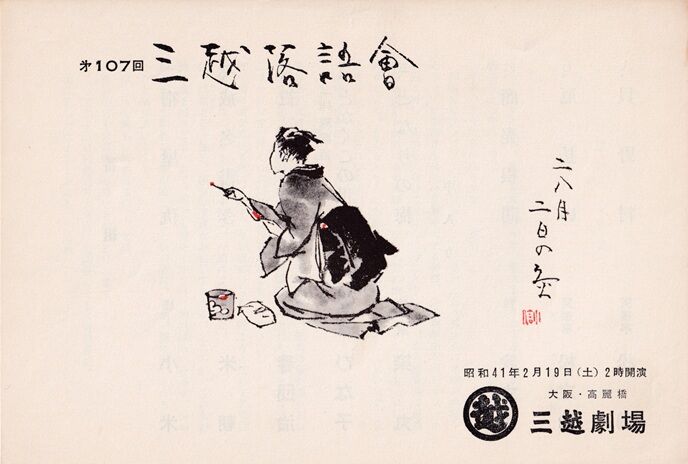 第107回 三越落語會
二八月
二日の灸
昭和41年2月19日(土)2時開演
大阪・高麗橋
三越劇場